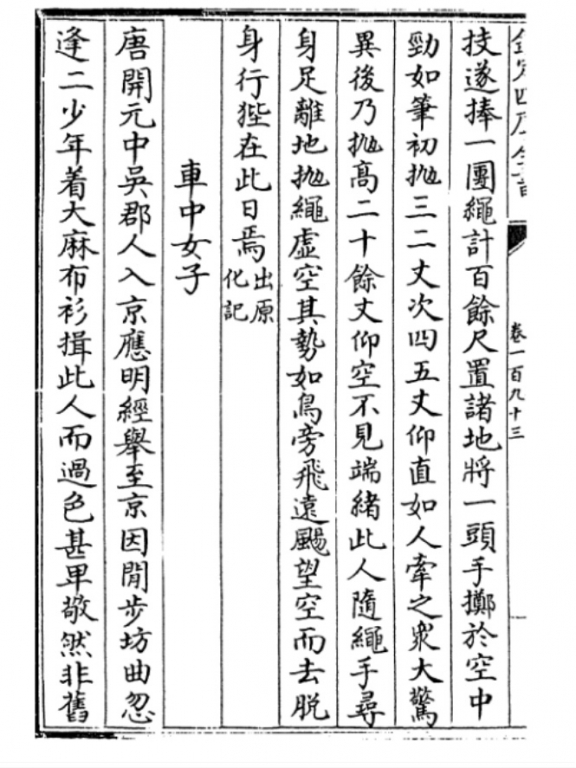 欽定四庫全書
卷一百九十三
技遂捧一團繩計百餘尺置諸地將一頭手擲於空中
勁如筆初抛三二丈次四五丈仰直如人牽之衆大驚
異後乃抛高二十餘丈仰空不見端緒此人隨繩手尋
身足離地抛繩虚空其勢如鳥旁飛遠颺望空而去脱
身行狴在此日焉出原
化記
車中女子
唐開元中吳郡人入京應明經舉至京因閒步坊曲忽
逢二少年着大麻布衫揖此人而過色甚卑敬然非舊